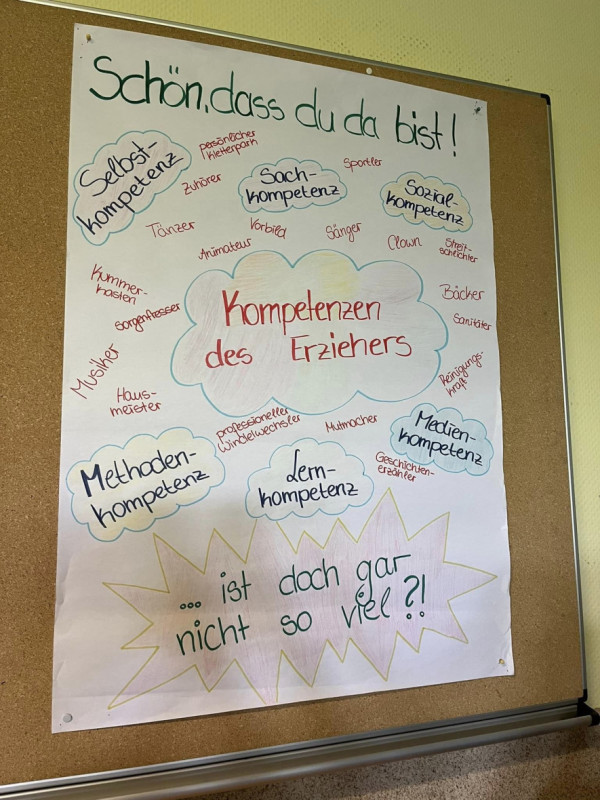 Schön, dass du da bist!
Selbst-
kompetenz
persönlicher
Kletterpark
Zuhörer
Sach-
kompetenz
Sportler
Sozial-
kompetenz
Tänzer
Animateur
Vorbild
Sänger
Clown
Streit-
schlichter
Kummer-
kasten
Sorgenfresser
Kompetenzen
des Erziehers
Bäcker
Sanitäter
Musiker
Haus-
meister
Reinigungs-
kraft
professioneller
Windelwechsler
Mutmacher
Methoden-
kompetenz
Lern-
kompetenz
Medien-
kompetenz
Geschichten-
erzähler
... ist doch gar
nicht so viel?!